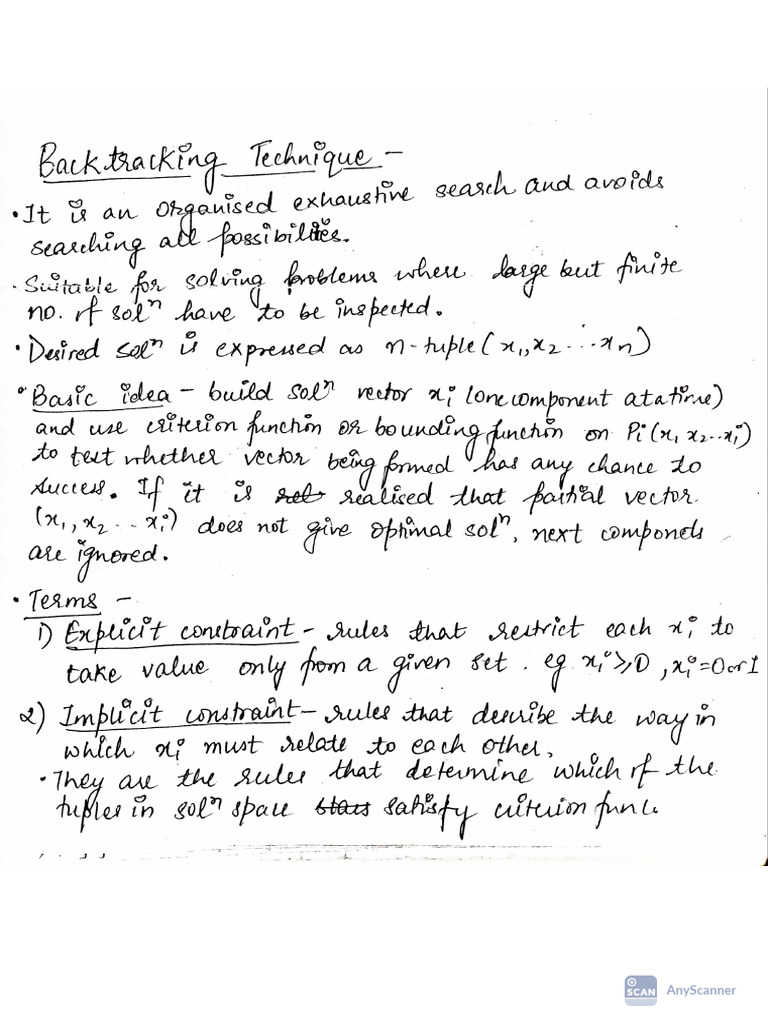 Backtracking Technique –
• It is an organised exhaustive search and avoids
searching all possibilities.
• Suitable for solving problems where large but finite
no. of solⁿ have to be inspected.
• Desired solⁿ is expressed as n-tuple (x₁, x₂ ... xn)
• Basic idea – build solⁿ vector xi (one component at a time)
and use criterion function or bounding function on Pi (x₁ x₂ .. xi)
to test whether vector being formed has any chance to
success. If it is realised that partial vector
(x₁, x₂ ... xi) does not give optimal solⁿ, next componets
are ignored.
• Terms –
1) Explicit constraint – rules that restrict each xi to
take value only from a given set. eg xi ≥ 0, xi = 0 or 1
2) Implicit constraint – rules that describe the way in
which xi must relate to each other.
• They are the rules that determine which of the
tuples in solⁿ space satisfy criterion func
SCAN AnyScanner